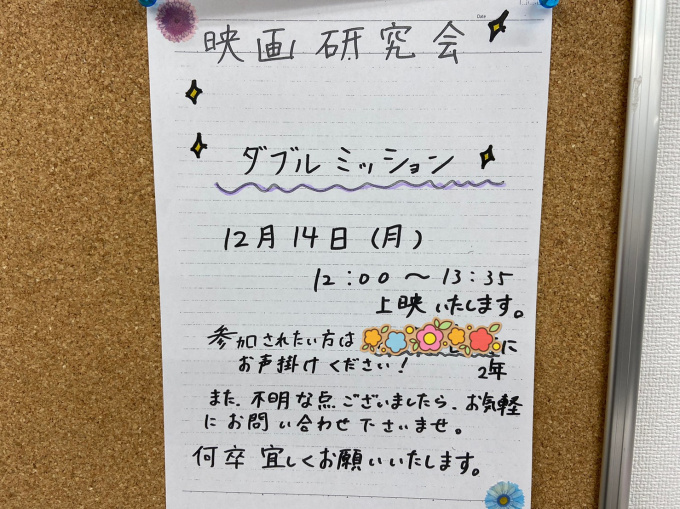 Date
映画研究会
ダブルミッション
12月14日(月)
12:00～13:35
上映いたします。
参加されたい方は
に
お声掛けください!
2年
また、不明な点ございましたら、お気軽
にお問い合わせ下さいませ。
何卒宜しくお願いいたします。